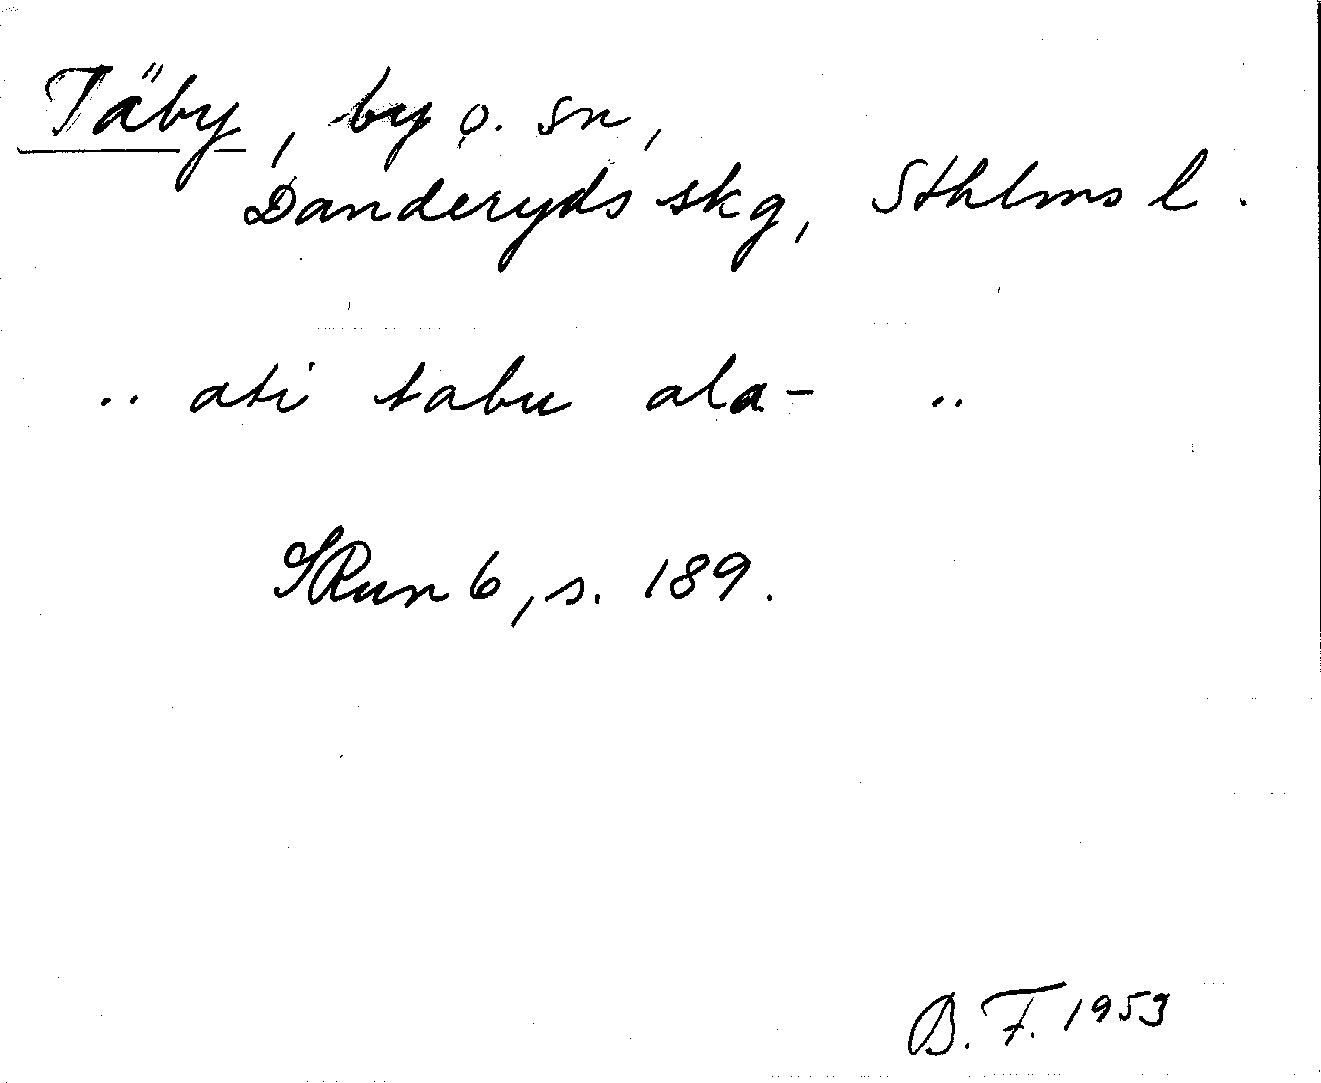 Täby, by o. sn,
Danderyds skg, Sthlms l.
.. ati tabu ala- ..
SRun 6, s. 189.
B. F. 1953